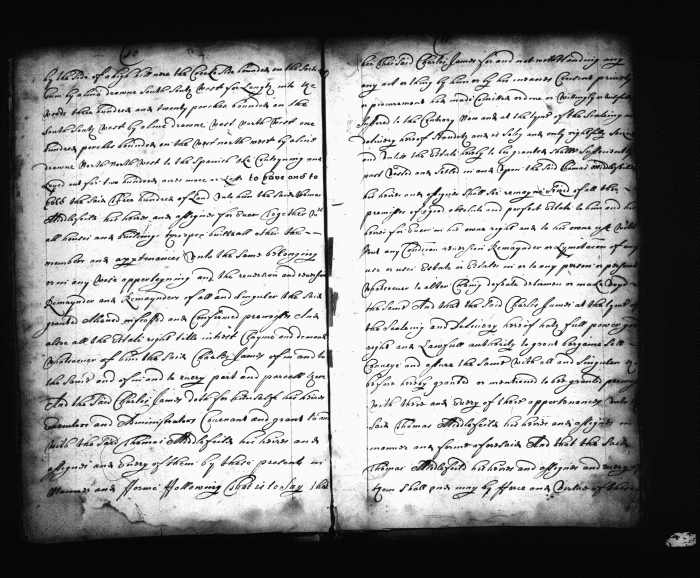 by the side of a the Creeke side bounded on the South
by a line drawne South South West for Length into the
woods three hundred and twenty perches bounded on the
South South West by a line drawne West North West one
hundred perches bounded on the West North West by a line
drawne North North West to the Creeke Contayning and
Layd out for two hundred acres more or Less to have and to
hold the said three hundred of Land unto him the said Thomas
Middlefeild his heires and assignes for Ever Together with
all houses and buildings thereupon built all other the
members and appurtenances unto the same belonging
or in any wise apperteyning and the reversion and reversions
Remaynder and Remaynders of all and singular the said
granted aliened and Confirmed premisses And
alsoe all the Estate right title interest Clayme and demand
whatsoever of him the said Charles James of in and to
the same and of in and to every part and parcell thereof
And the said Charles James doth for himselfe his heires
Executors and Administrators Covenant and grant to and
with the said Thomas Middlefeild his heires and
assignes and Every of them by these presents in
Manner and fforme ffollowing (that is to say) that
he the said Charles James for and not withstanding any
any act or thing by him or by his meanes Consent privity
or procurement had made Comitted or done or willingly
suffered to the Contrary Now and at the tyme of the sealing and
delivery hereof standeth and is soly and only rightfully seized
and untill the Estate hereby to be granted shalbe sufficiently
past vested and setled in and upon the said Thomas Middlefeild
his heires and assignes shall soe remayne seized of all the
premisses of a good absolute and perfect Estate to him and his
heires for Ever in his owne right and to his owne use with
out any Condicion reversion Remaynder or Lymitacon of any
use or uses Estate or Estates in or to any person or persons
whatsoever to alter Change defeate determine or make voyd
the same And that the said Charles James at the tyme of
the sealeing and delivery hereof hath full power good
right and Lawfull authority to grant bargaine sell
Convey and assure the same with all and singular
before hereby granted or mentioned to be granted premisses
with their and Every of their appurtenances unto
said Thomas Middlefeild his heires and assignes in
manner and forme aforesaid And that the said
Thomas Middlefeild his heires and assignes and every of
them shall and may by fforce and Vertue of these